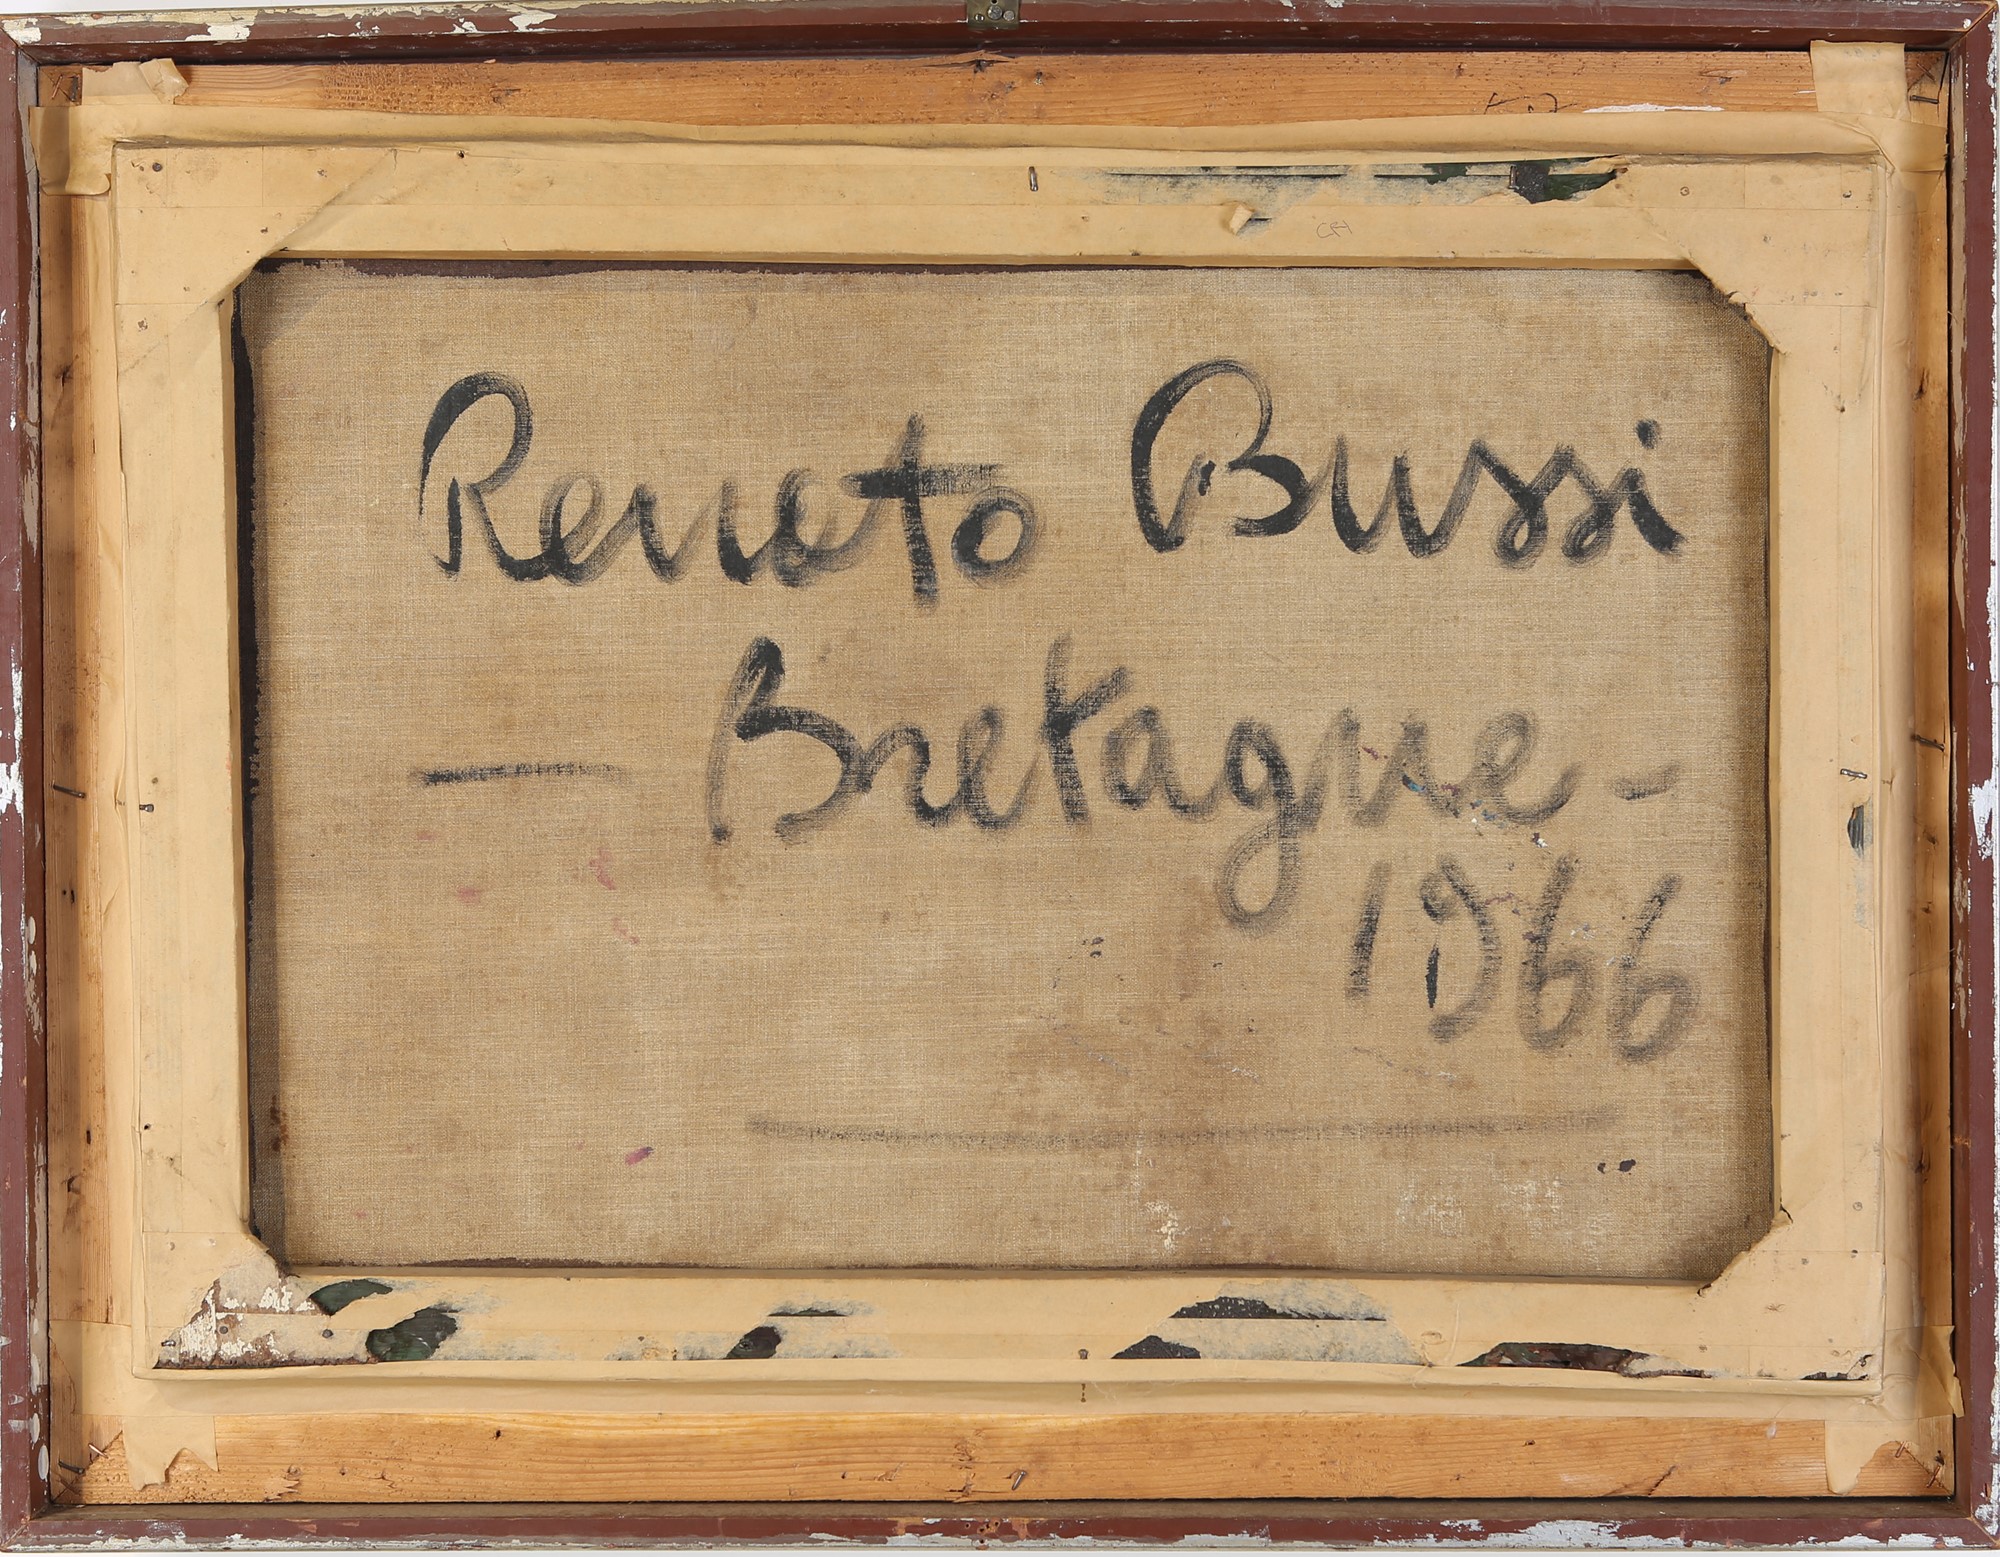 Renato Bussi
— Bretagne -
1966